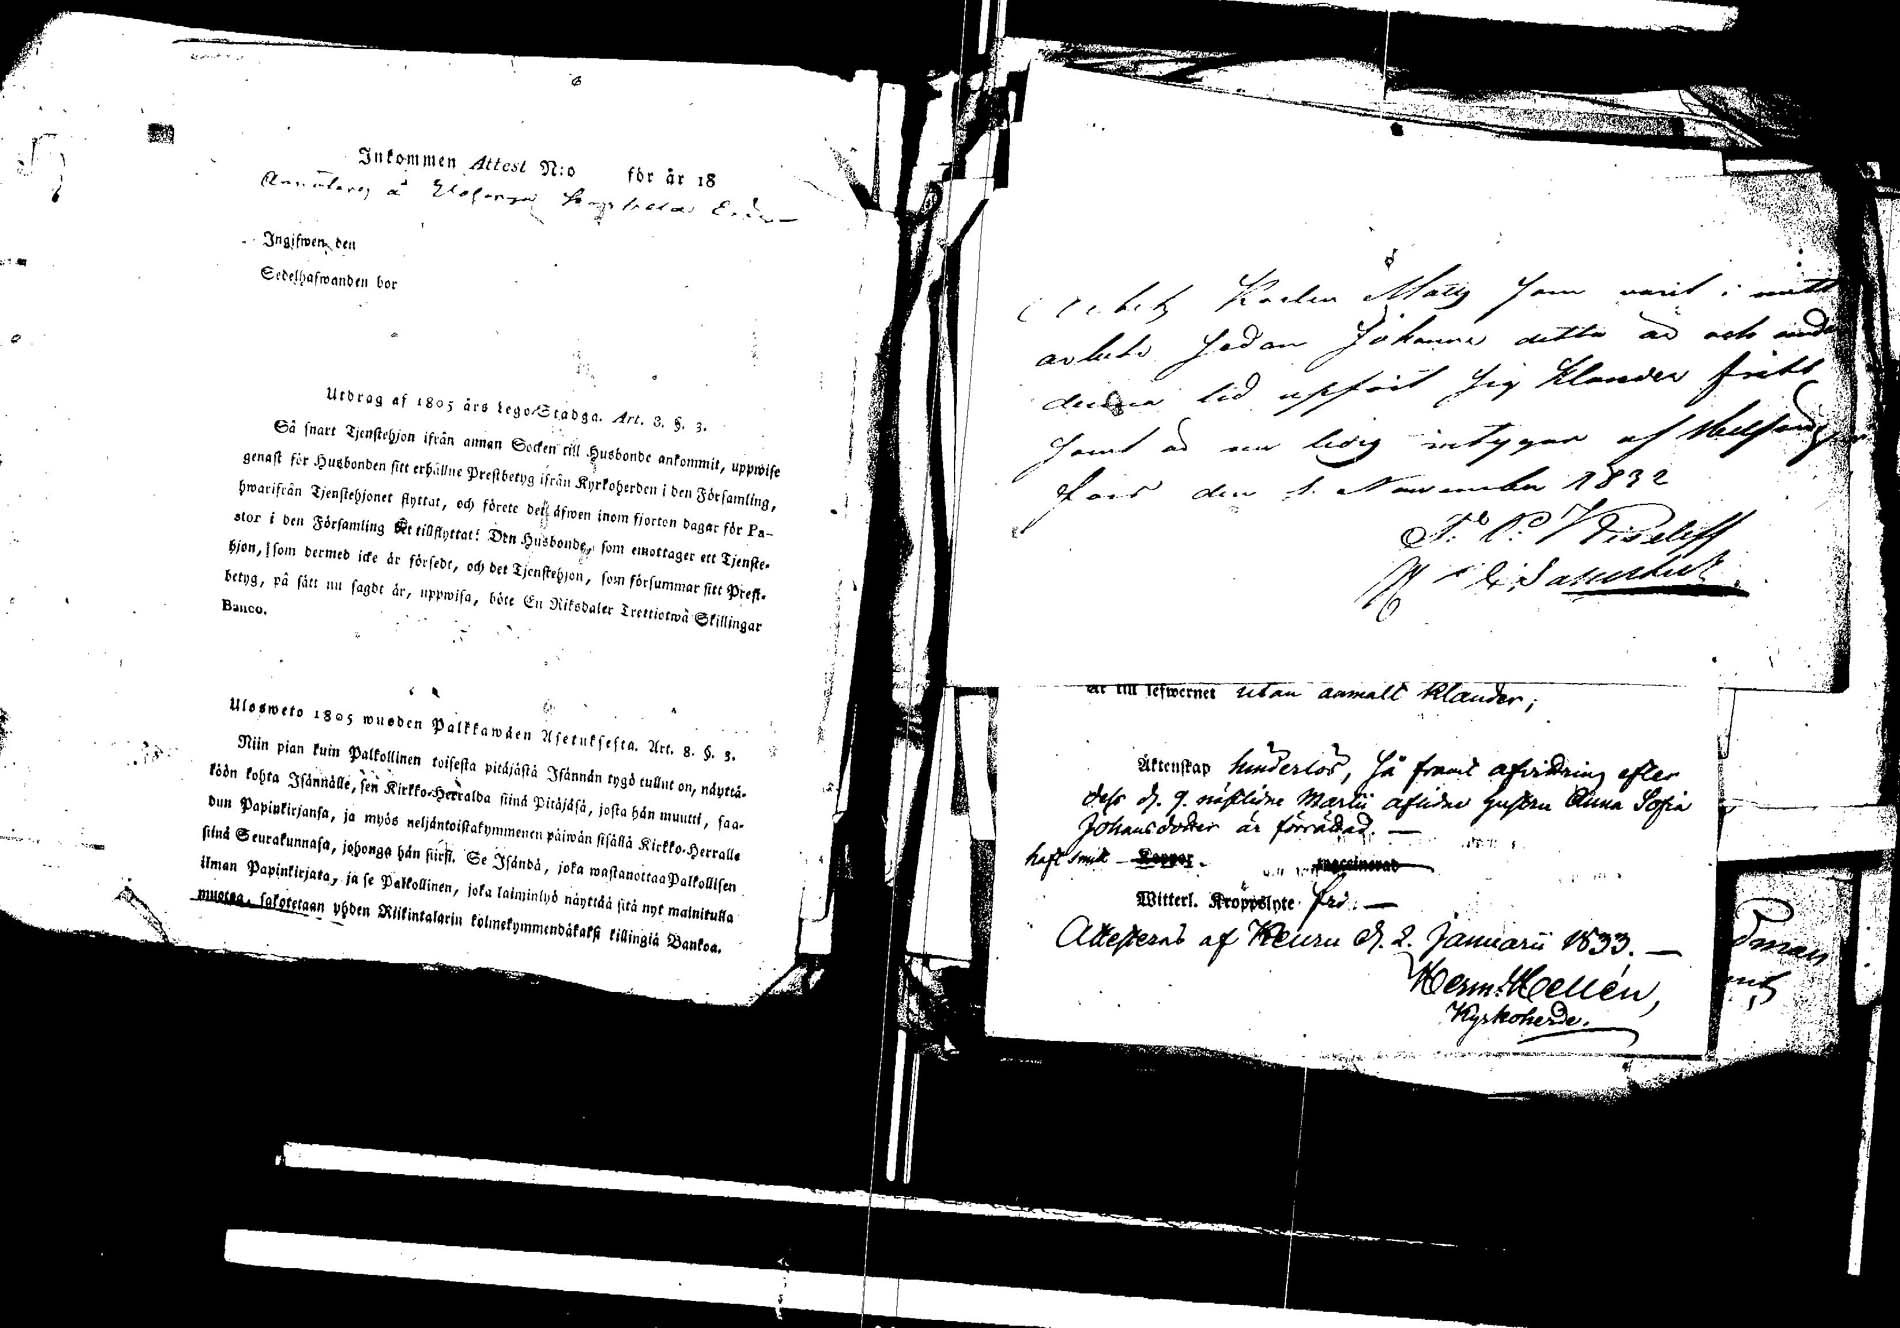 Inkommen Attest N:o för år 18
å
Ingifwen den
Sedelhafwanden bor
Utdrag af 1805 års Lego-Stadga. Art. 3. §. 3.
Så snart Tjenstehjon ifrån annan Socken till Husbonde ankommit, uppwise
genast för Husbonden sitt erhållne Prestbetyg ifrån Kyrkoherden i den Församling,
hwarifrån Tjenstehjonet flyttat, och förete det äfwen inom fjorton dagar för Pa-
stor i den Församling det tillflyttat: Den Husbonde, som emottager ett Tjenste-
hjon, som dermed icke är försedt, och det Tjenstehjon, som försummar sitt Prest-
betyg, på sätt nu sagdt är, uppwisa, böte En Riksdaler Trettiotwå Skillingar
Banco.
Ulosweto 1805 wuoden Palkkawäen Asetuksesta. Art. 8. §. 3.
Niin pian kuin Palkollinen toisesta pitäjästä Isännän tygö tullut on, näyttä-
köön kohta Isännälle, sen Kirkko-Herralda siinä Pitäjäsä, josta hän muutti, saa-
dun Papinkirjansa, ja myös neljäntoistakymmenen päiwän sisällä Kirkko-Herralle
siinä Seurakunnasa, johonga hän siirsi. Se Isändä, joka wastanottaa Palkollisen
ilman Papinkirjata, ja se Palkollinen, joka laiminlyö näyttää sitä nyt mainitulla
muotoa, sakotetaan yhden Riikintalarin kolmekymmendäkaksi killingiä Bankoa.
Karlen Matts som varit i mitt
arbete sedan Johanni detta år och under
denna tid upfört sig klander fritt
samt är nu ledig intygar af Helsing
fors den 1. November 1832
är till lefwernet utan anmält klander;
Äktenskap hinderlös, så framt afvittring efter
dess d. 9. nästledne Martii aflidne hustru Anna Sofia
Johansdotter är förrättad. —
haft små Koppor. vaccinerad
Witterl. Kroppslyte fri. —
Attesteras af Keuru d. 2. Januarii 1833. —
Herm: Hellén,
Kyrkoherde.